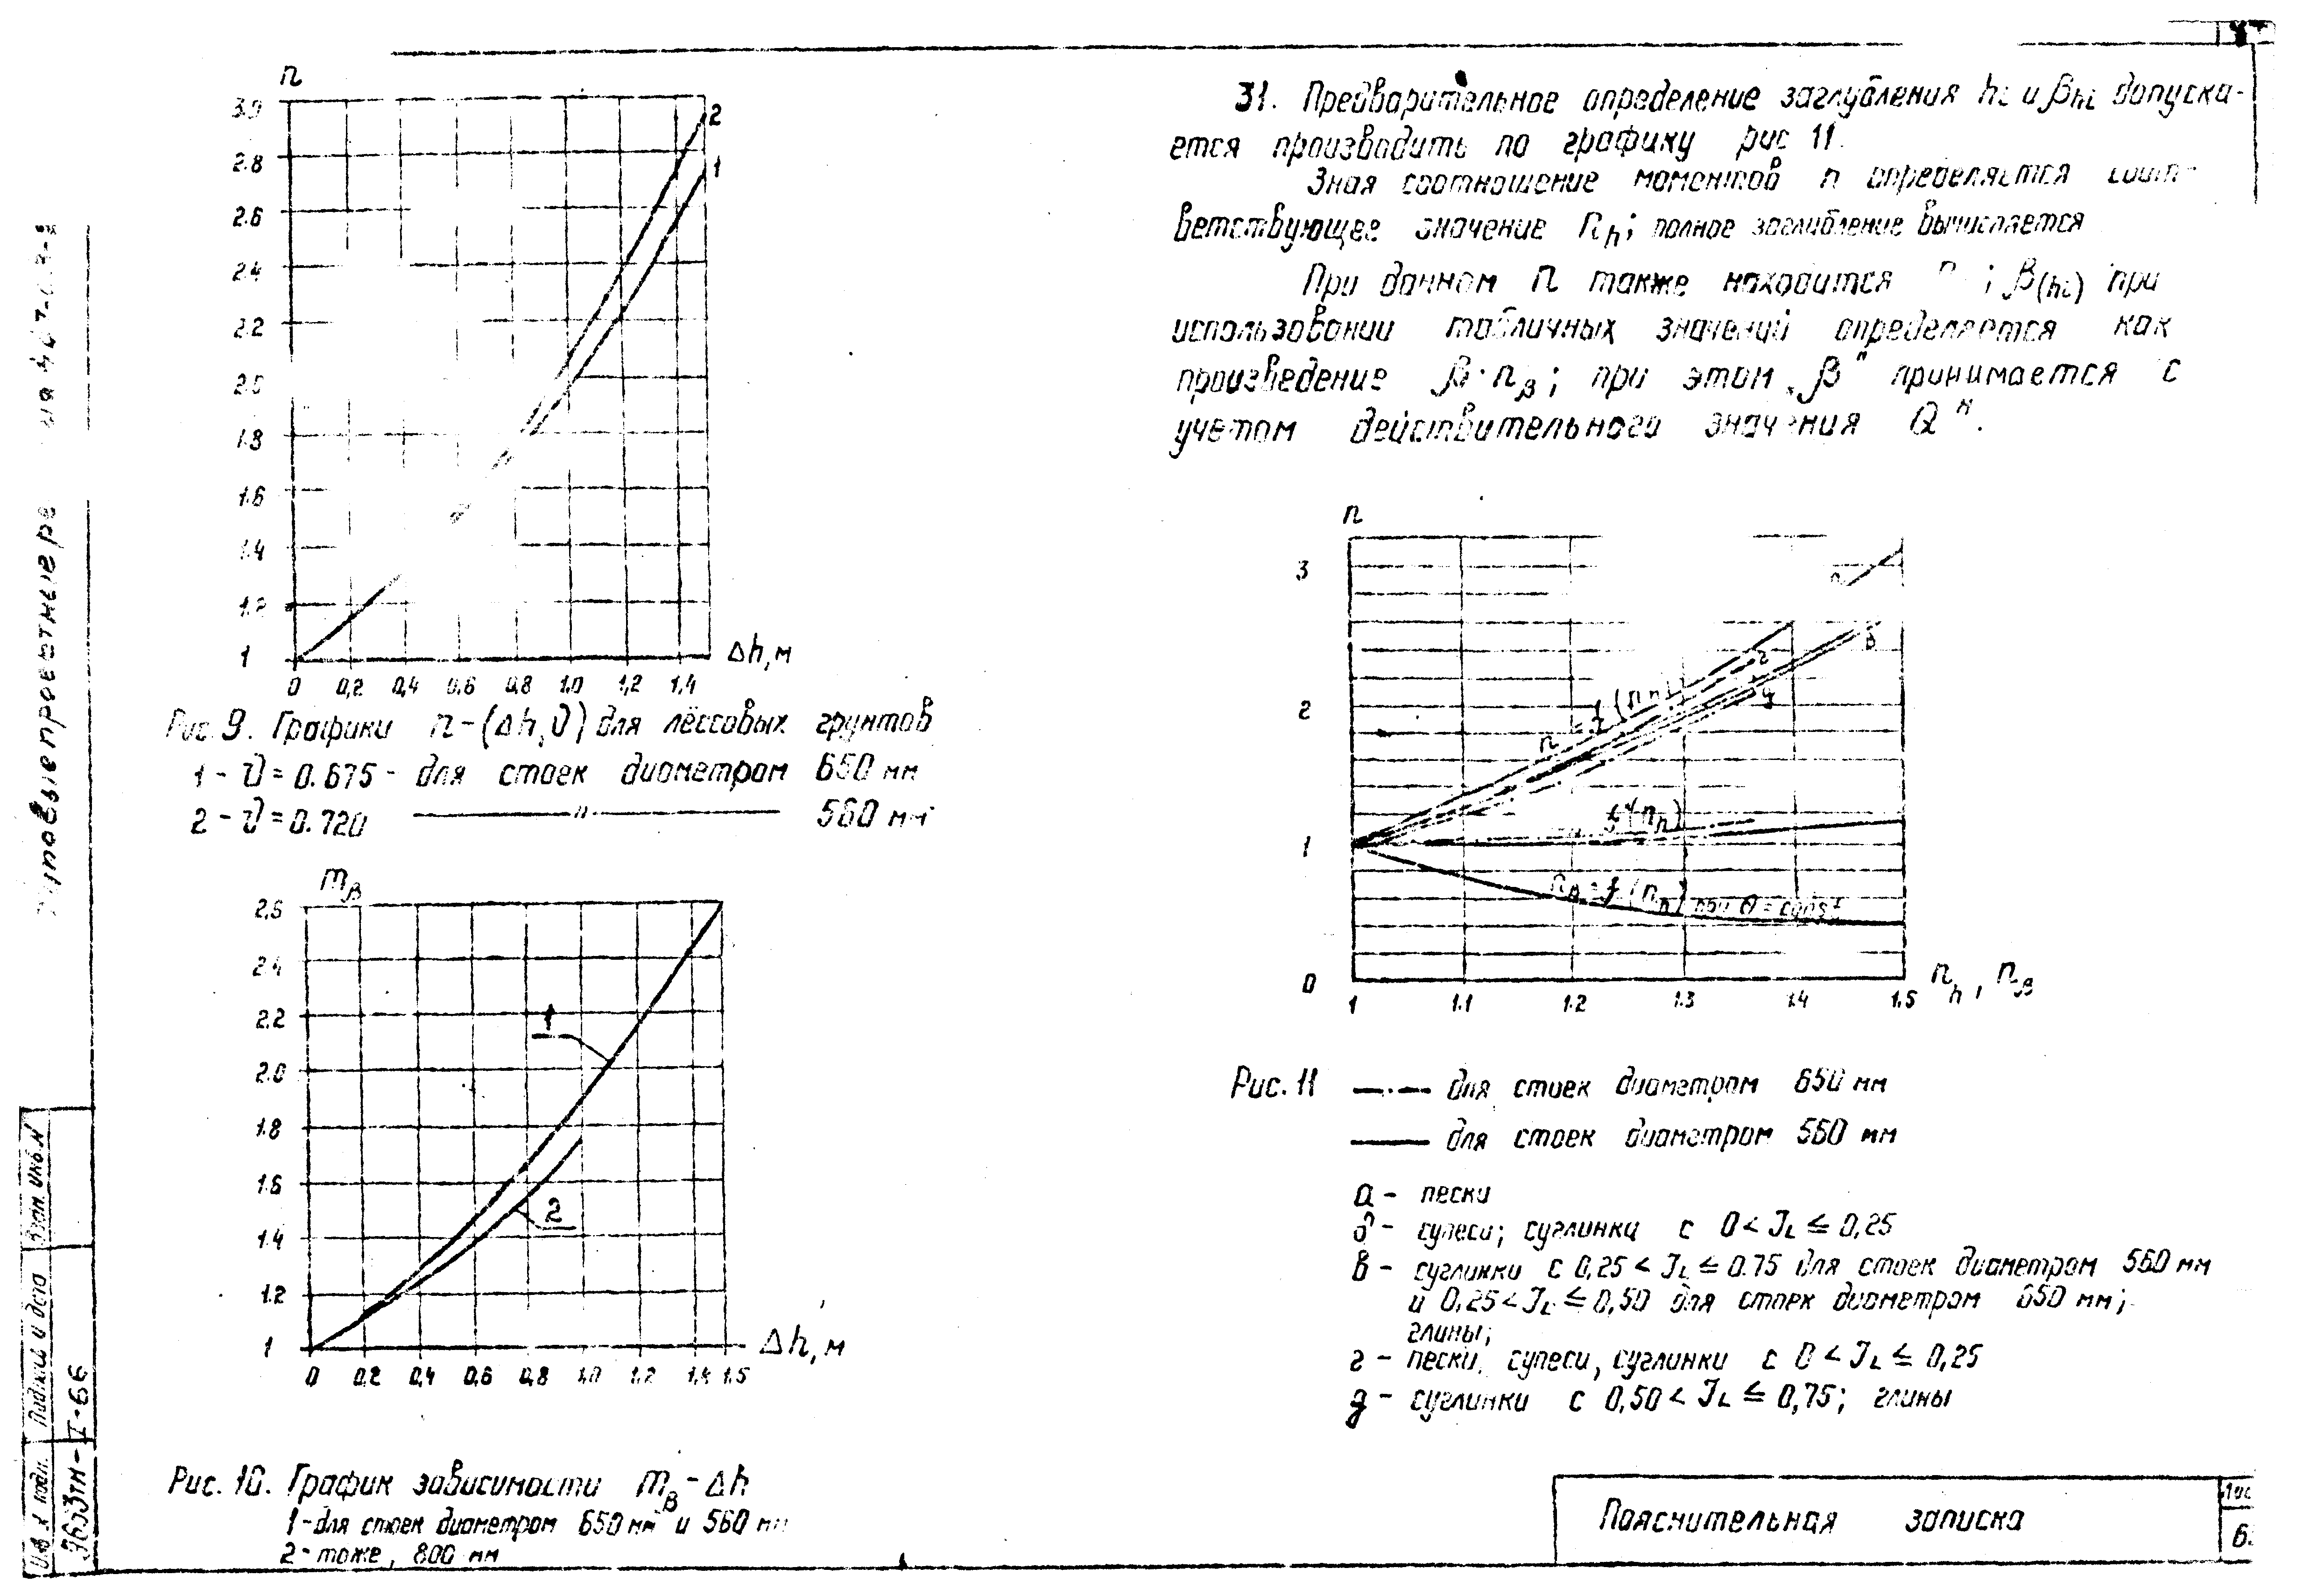 n
3.0
2.8
2.6
2.4
2.2
2.0
1.8
1.6
1.4
1.2
1
2
1
0 0,2 0,4 0,6 0,8 1,0 1,2 1,4
Δh, м
Рис. 9. Графики n-(Δh,ϑ) для лёссовых грунтов
1 - ϑ = 0.675 - для стоек диаметром 650 мм
2 - ϑ = 0.720 ——— " ——— 560 мм
mβ
2,6
2.4
2.2
2.0
1.8
1.6
1.4
1.2
1
1
2
0 0,2 0,4 0,6 0,8 1,0 1.2 1,4 1.5
Δh, м
Рис. 10. График зависимости mβ - Δh
1-для стоек диаметром 650 мм и 560 мм
2- тоже, 800 мм
31. Предварительное определение заглубления hi и βhi допуска-
ется производить по графику рис 11.
Зная соотношение моментов n определяется соот-
ветствующее значение nh; полное заглубление вычисляется
При данном n также находится ; β(hi) при
использовании табличных значений определяется как
произведение β·nβ; при этом „β" принимается с
учетом действительного значения Qн.
n
3
2
1
0
a
г
в
д
n = f(nh)
f(nh)
nβ = f(nh) при Q = const
1 1.1 1.2 1.3 1.4 1.5
nh, nβ
Рис. 11 —·— для стоек диаметром 650 мм
—— для стоек диаметром 560 мм
а - пески
б - супеси; суглинки с 0 < JL ≤ 0,25
в - суглинки с 0,25 < JL ≤ 0.75 для стоек диаметром 560 мм
и 0,25 < JL ≤ 0,50 для стоек диаметром 650 мм;
глины;
г - пески, супеси, суглинки с 0 < JL ≤ 0,25
д - суглинки с 0,50 < JL ≤ 0,75; глины
Пояснительная записка
6
Типовые проектные ре
Взам. инв. N
Подпись и дата
Инв. N подл.